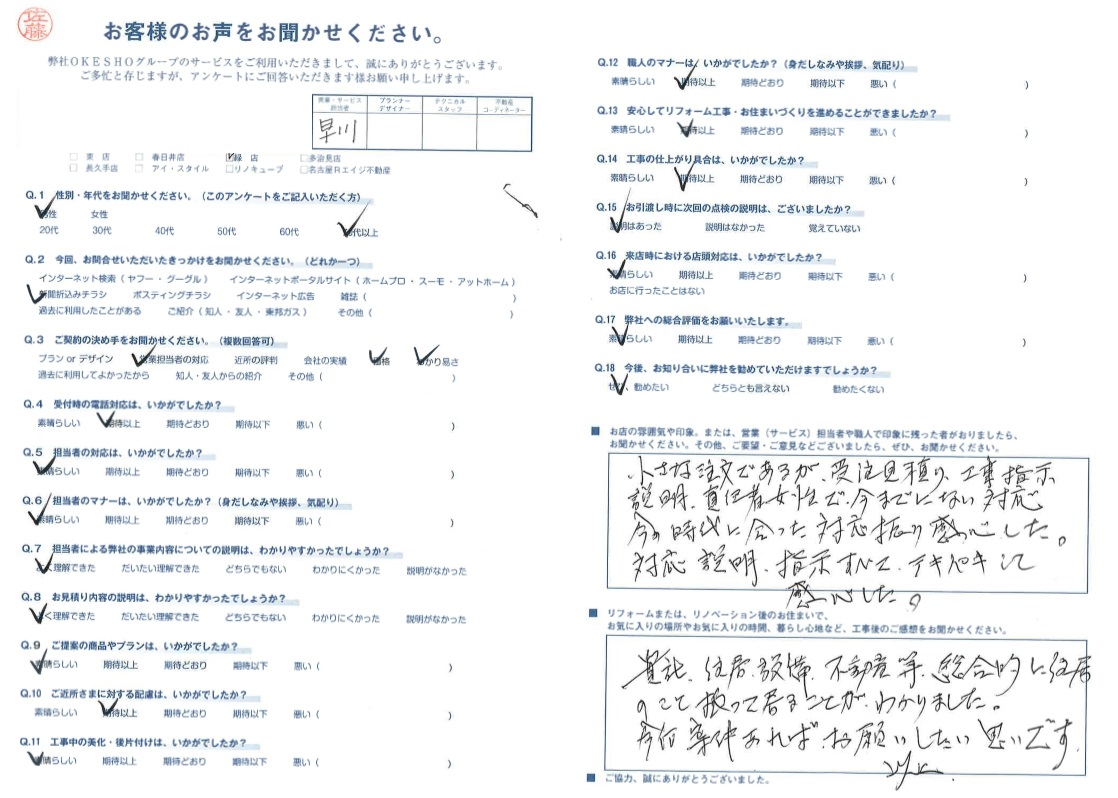 佐藤
お客様のお声をお聞かせください。
弊社OKESHOグループのサービスをご利用いただきまして、誠にありがとうございます。
ご多忙と存じますが、アンケートにご回答いただきます様お願い申し上げます。
営業・サービス担当者 プランナーデザイナー テクニカルスタッフ 不動産コーディネーター
早川
東店 春日井店 緑店 多治見店
長久手店 アイ・スタイル リノキューブ 名古屋Rエイジ不動産
Q.1 性別・年代をお聞かせください。（このアンケートをご記入いただく方）
性 女性
20代 30代 40代 50代 60代 代以上
Q.2 今回、お問合せいただいたきっかけをお聞かせください。（どれか一つ）
インターネット検索（ヤフー・グーグル） インターネットポータルサイト（ホームプロ・スーモ・アットホーム）
新聞折込みチラシ ポスティングチラシ インターネット広告 雑誌（ ）
過去に利用したことがある ご紹介（知人・友人・東邦ガス） その他（ ）
Q.3 ご契約の決め手をお聞かせください。（複数回答可）
プラン or デザイン 営業担当者の対応 近所の評判 会社の実績 価格 わかり易さ
過去に利用してよかったから 知人・友人からの紹介 その他（ ）
Q.4 受付時の電話対応は、いかがでしたか？
素晴らしい 期待以上 期待どおり 期待以下 悪い（ ）
Q.5 担当者の対応は、いかがでしたか？
素晴らしい 期待以上 期待どおり 期待以下 悪い（ ）
Q.6 担当者のマナーは、いかがでしたか？（身だしなみや挨拶、気配り）
素晴らしい 期待以上 期待どおり 期待以下 悪い（ ）
Q.7 担当者による弊社の事業内容についての説明は、わかりやすかったでしょうか？
よく理解できた だいたい理解できた どちらでもない わかりにくかった 説明がなかった
Q.8 お見積り内容の説明は、わかりやすかったでしょうか？
よく理解できた だいたい理解できた どちらでもない わかりにくかった 説明がなかった
Q.9 ご提案の商品やプランは、いかがでしたか？
素晴らしい 期待以上 期待どおり 期待以下 悪い（ ）
Q.10 ご近所さまに対する配慮は、いかがでしたか？
素晴らしい 期待以上 期待どおり 期待以下 悪い（ ）
Q.11 工事中の美化・後片付けは、いかがでしたか？
素晴らしい 期待以上 期待どおり 期待以下 悪い（ ）
Q.12 職人のマナーは、いかがでしたか？（身だしなみや挨拶、気配り）
素晴らしい 期待以上 期待どおり 期待以下 悪い（ ）
Q.13 安心してリフォーム工事・お住まいづくりを進めることができましたか？
素晴らしい 期待以上 期待どおり 期待以下 悪い（ ）
Q.14 工事の仕上がり具合は、いかがでしたか？
素晴らしい 期待以上 期待どおり 期待以下 悪い（ ）
Q.15 お引渡し時に次回の点検の説明は、ございましたか？
説明はあった 説明はなかった 覚えていない
Q.16 来店時における店頭対応は、いかがでしたか？
素晴らしい 期待以上 期待どおり 期待以下 悪い（ ）
お店に行ったことはない
Q.17 弊社への総合評価をお願いいたします。
素晴らしい 期待以上 期待どおり 期待以下 悪い（ ）
Q.18 今後、お知り合いに弊社を勧めていただけますでしょうか？
ぜひ、勧めたい どちらとも言えない 勧めたくない
■ お店の雰囲気や印象。または、営業（サービス）担当者や職人で印象に残った者がおりましたら、
お聞かせください。その他、ご要望・ご意見などございましたら、ぜひ、お聞かせください。
小さな注文であるが、受注見積り、工事指示
説明、責任者女性で、今までにない対応
今の時代に合った対応振り感心した。
対応説明、指示すべて、テキパキして
感心した。
■ リフォームまたは、リノベーション後のお住まいで、
お気に入りの場所やお気に入りの時間、暮らし心地など、工事後のご感想をお聞かせください。
貴社、住居、設備、不動産等、総合的に住居
のこと扱って居ることがわかりました。
今后案件あればお願いしたい思いです
以上.
■ ご協力、誠にありがとうございました。